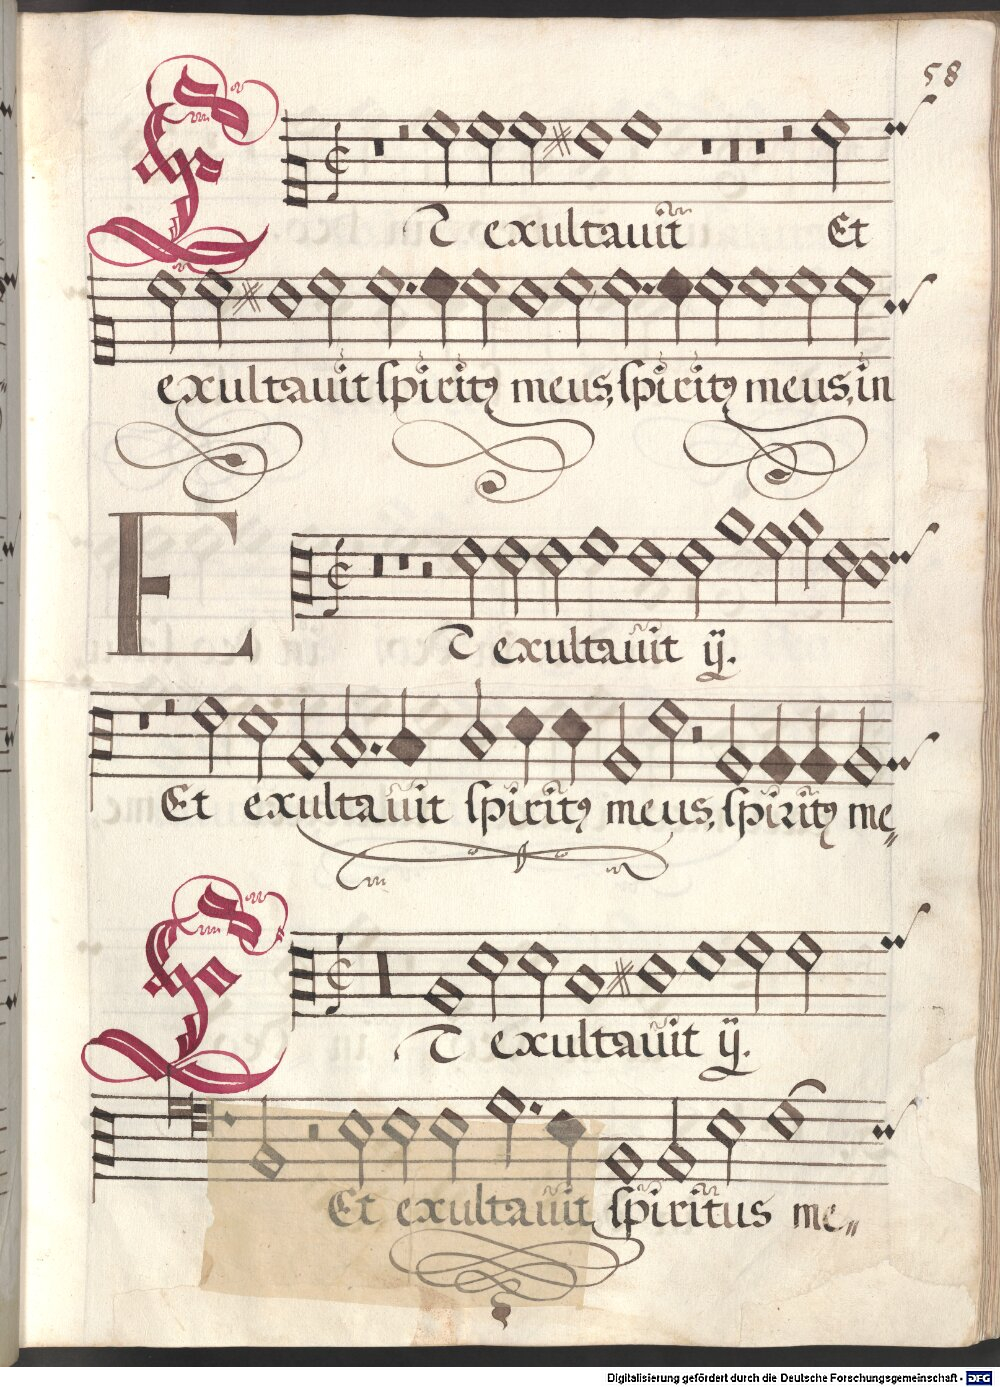 58
Et exultauit Et
exultauit spiritꝰ meus, spiritꝰ meus, in
Et exultauit ij.
Et exultauit spiritꝰ meus, spiritꝰ me„
Et exultauit ij.
Et exultauit spiritus me„
Digitalisierung gefördert durch die Deutsche Forschungsgemeinschaft - DFG